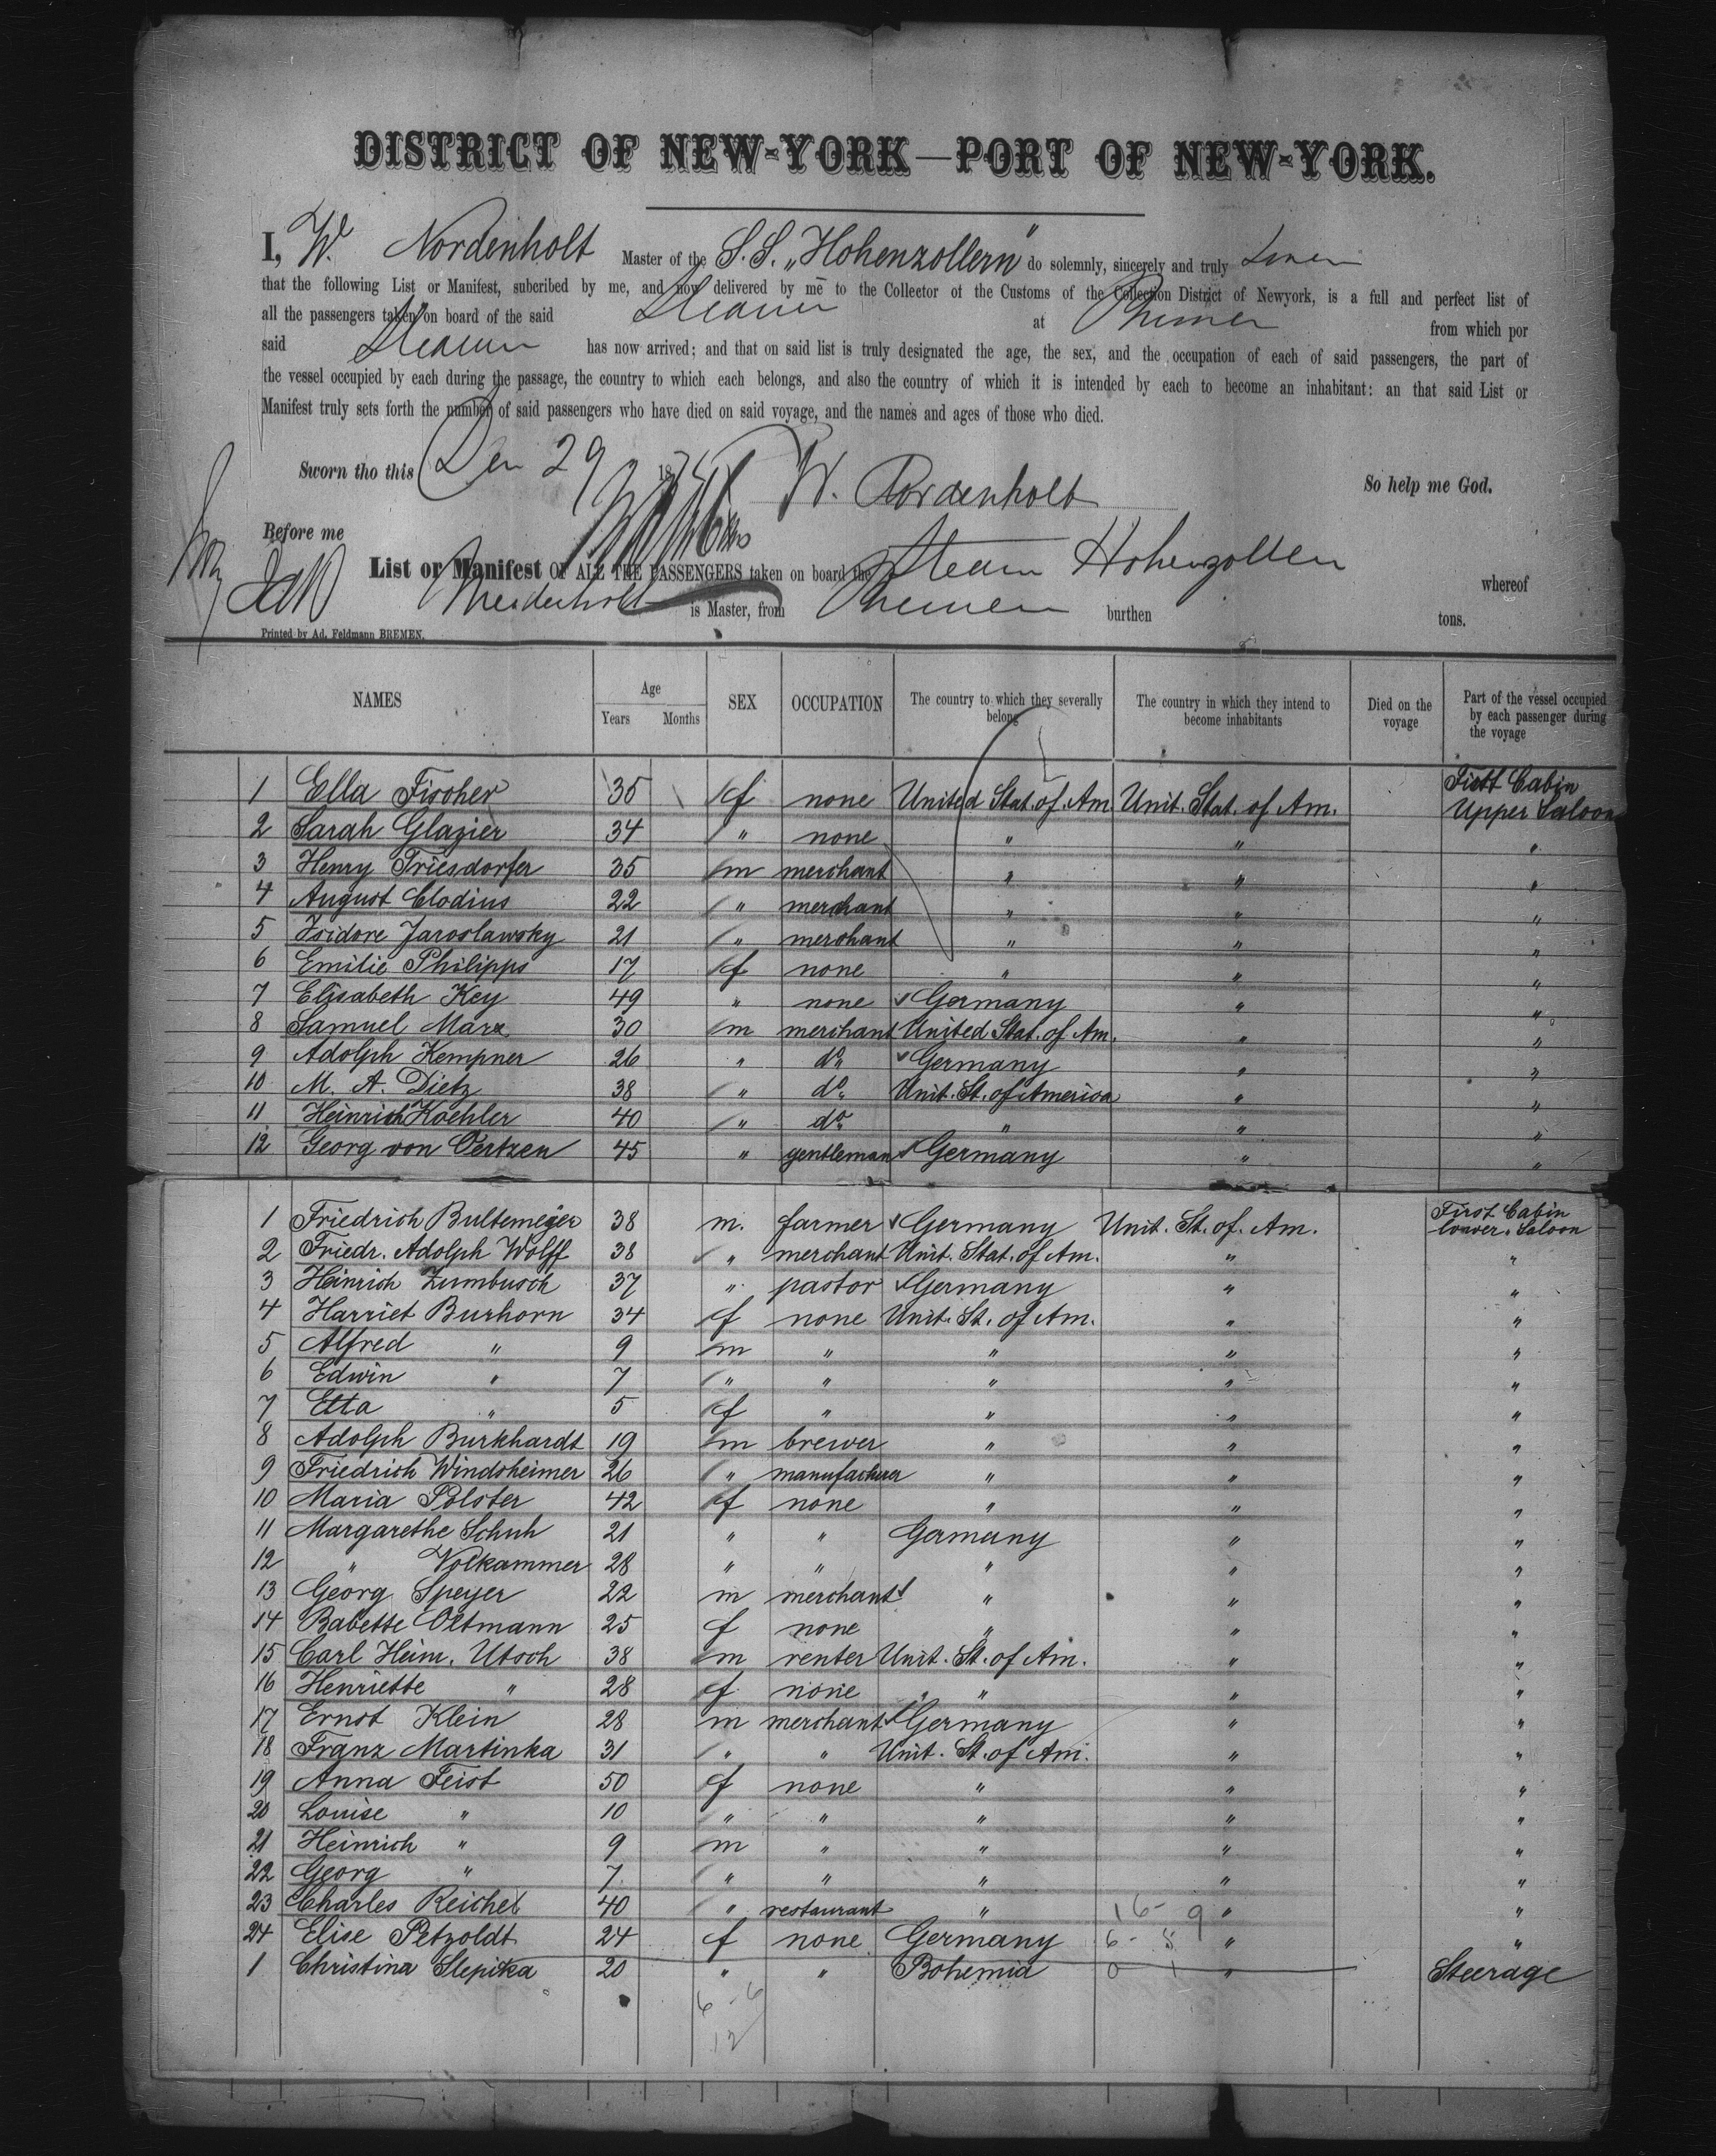 DISTRICT OF NEW-YORK—PORT OF NEW-YORK.
I, W. Nordenholt Master of the S.S. „Hohenzollern" do solemnly, sincerely and truly
that the following List or Manifest, subcribed by me, and now delivered by me to the Collector of the Customs of the Collection District of Newyork, is a full and perfect list of
all the passengers taken on board of the said Steamer at Bremen from which por
said Steamer has now arrived; and that on said list is truly designated the age, the sex, and the occupation of each of said passengers, the part of
the vessel occupied by each during the passage, the country to which each belongs, and also the country of which it is intended by each to become an inhabitant: an that said List or
Manifest truly sets forth the number of said passengers who have died on said voyage, and the names and ages of those who died.
Sworn tho this Dec 29 18 W. Nordenholt So help me God.
Before me
List or Manifest OF ALL THE PASSENGERS taken on board the Steam Hohenzollern whereof
Nordenholt is Master, from Bremen burthen tons.
Printed by Ad. Feldmann BREMEN.
NAMES Age Years Months SEX OCCUPATION The country to which they severally belong The country in which they intend to become inhabitants Died on the voyage Part of the vessel occupied by each passenger during the voyage
1 Ella Fischer 35 f none United Stat. of. Am Unit. Stat. of Am. First Cabin Upper Saloon
2 Sarah Glazier 34 " none " " "
3 Henry Friesdorfer 35 m merchant " " "
4 August Clodius 22 " merchant " " "
5 Isidore Jaroslawsky 21 " merchant " " "
6 Emilie Philipps 17 f none " " "
7 Elisabeth Key 49 " none Germany " "
8 Samuel Marx 30 m merchant United Stat. of Am. " "
9 Adolph Kempner 26 " do. Germany " "
10 M. A. Dietz 38 " do. Unit. St. of America " "
11 Heinrich Koehler 40 " do. " " "
12 Georg von Oertzen 45 " gentleman Germany " "
1 Friedrich Bultemeijer 38 m. farmer Germany Unit. St. of. Am. First Cabin lower. Saloon
2 Friedr. Adolph Wolff 38 " merchant Unit. Stat. of Am. " "
3 Heinrich Zumbusch 37 " pastor Germany " "
4 Harriet Burhorn 34 f none Unit. St. of Am. " "
5 Alfred " 9 m " " " "
6 Edwin " 7 " " " " "
7 Etta " 5 f " " " "
8 Adolph Burkhardt 19 m brewer " " "
9 Friedrich Windsheimer 26 " manufacturer " " "
10 Maria Polster 42 f none " " "
11 Margarethe Schuh 21 " " Germany " "
12 " Volkammer 28 " " " " "
13 Georg Speyer 22 m merchant " " "
14 Babette Oltmann 25 f none " " "
15 Carl Heinr. Utsch 38 m renter Unit. St. of Am. " "
16 Henriette " 28 f none " " "
17 Ernst Klein 28 m merchant Germany " "
18 Franz Martinka 31 " " Unit. St. of Am. " "
19 Anna Feist 50 f none " " "
20 Louise " 10 " " " " "
21 Heinrich " 9 m " " " "
22 Georg " 7 " " " " "
23 Charles Reichel 40 " restaurant " 16- 9 " "
24 Elise Petzoldt 24 f none Germany 6- 5 " "
1 Christina Slepika 20 " " Bohemia 0 1 " Steerage
6 - 6
12